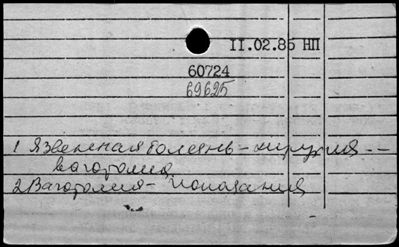 II.02.85 НП
60724
69625
1 Язвенная болезнь - хирургия --
ваготомия
2. Ваготомия - показания